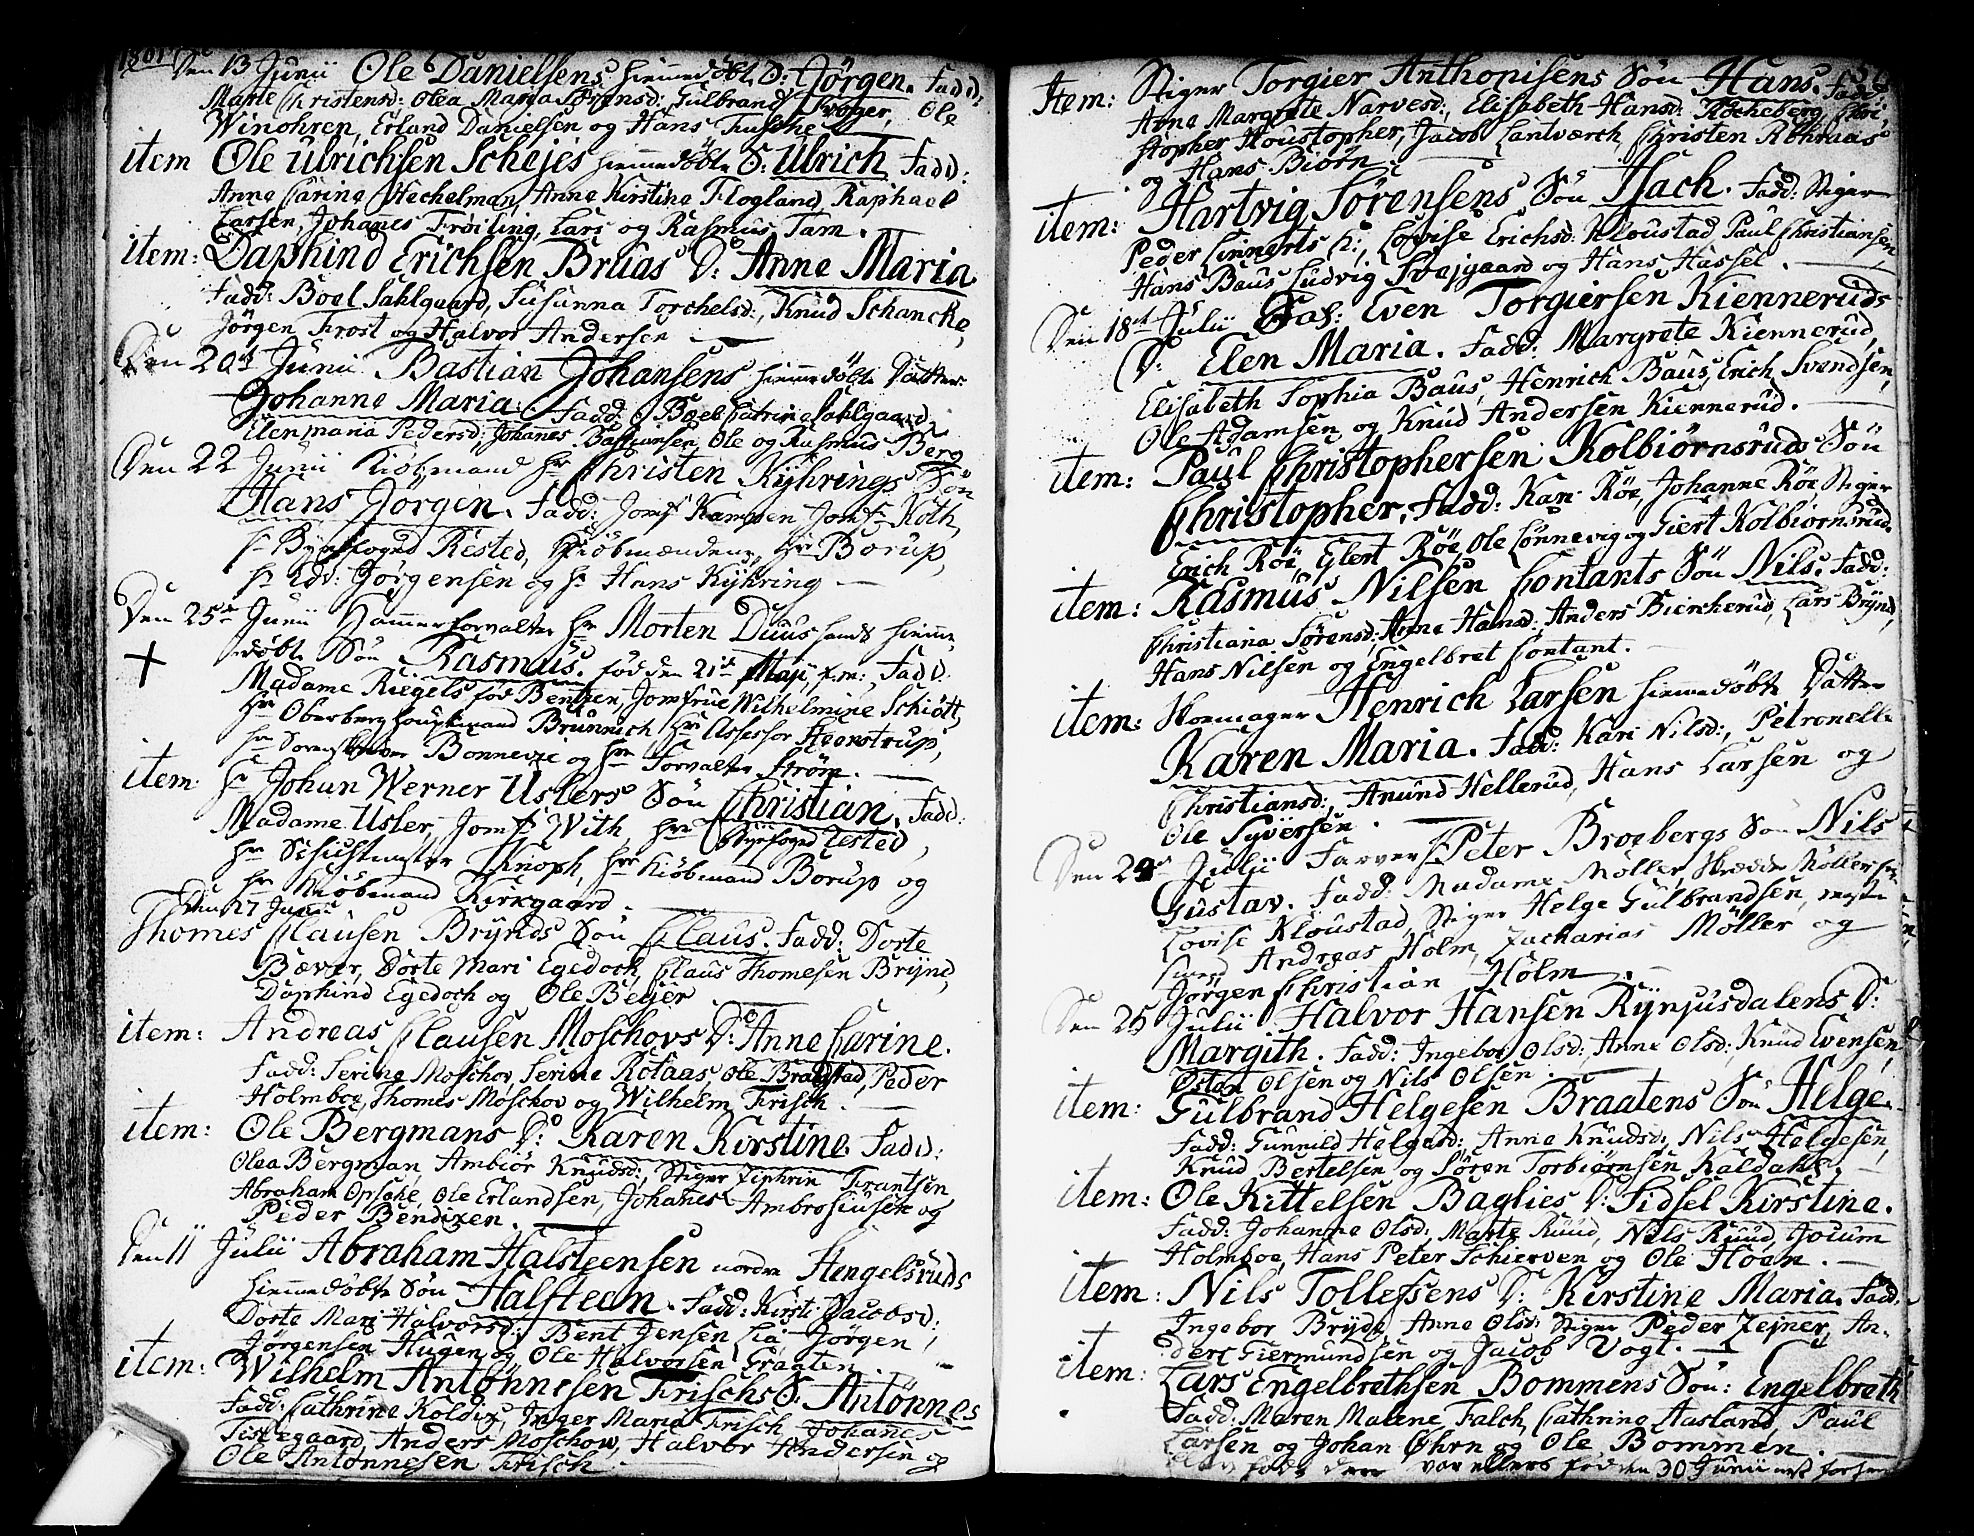 1801
Den 13 Junii Ole Danielsens hiemmedøbte S: Jörgen. Fadd:
Marie Christensd: Olea Maria Sörensd: Gulbrand Svoger, Ole
Winohren, Erland Danielsen og Hans Fusche
item Ole Ulrichsen Schejes hiemmedøbte S: Ulrich Fadd:
Anne Carine Hechelman, Anne Kirstine Flogland, Raphael
Larsen, Johanes Fröiling, Lars og Rasmus Tam.
item: Daphind Erichsen Bruas D: Anne Maria
Fadd: Boel Sahlgaard, Susanna Torchelsd:, Knud Schancke,
Jörgen Frost og Halvor Andersen
Den 20de Junii Bastian Johansens hiemmedøbte Datter
Johanne Maria. Fadd: Boel Catrine Sahlgaard,
Elen maria Pedersd: Johanes Bastiansen, Ole og Rasmus Berg
Den 22 Junii Kiöbmand Hr Christen Kyhrings Sön
Hans Jörgen. Fadd: Jomf Kampen Jomfr Koth,
Hr Byefoged Rested, Kiöbmændene, Hr Borup,
Hr Edv: Jörgensen og Hr Hans Kyhring
Den 25de Junii Hammerforvalter Hr Morten Duus hands hiemme-
døbte Sön Rasmus. fød den 21de Maji, f.m:, Fadd:
Madame Riegels fød Bentzen, Jomfrue Wilhelmine Schiött,
Hr Oberberghauptmand Brünnich Hr Assessor Steenstrup,
Hr Sorenskriver Bonnevie og Hr Forvalter Ström.
item Hr Johan Werner Uslers Sön Christian. Fadd:
Madame Usler, Jomfr With, Hr Byefoged Rested,
Hr Schichtmester Knoph, Hr Kiöbmand Borup og
Hr Kiöbmand Kirkgaard.
Den 27 Junii
Thomes Clausen Brynds Sön Claus. Fadd: Dorte
Bæver, Dorte Mari Egedoch, Claus Thomesen Brynd,
Daphind Egedoch og Ole Bejer
item: Andreas Clausen Moschovs D: Anne Carine.
Fadd: Serine Moschov, Serine Rotaas, Ole Braatstad, Peder
Holmboe, Thomes Moschov og Wilhelm Frisch.
item: Ole Bergmans D: Karen Kirstine. Fadd:
Olea Bergman Ambiör Knudsd:, Stiger Ziphrin Frantsen,
Abraham Opsahe, Ole Erlandsen, Johannes Ambrosiusen og
Peder Bendixen.
Den 11 Julii Abraham Halsteensen nordre Stengelsruds
hiemmedøbte Sön Halsteen. Fadd: Kirsti Jacobsd:
Dorte Mari Halvorsd: Bent Jensen Lia Jörgen
Jörgensen Hugen og Ole Halvorsen Graaten.
item: Wilhelm Antönnesen Frischs S. Antönnes
Fadd: Cathrine Koldix, Inger Maria Frisch, Johanes
Fistegaard, Anders Moschow, Halvor Andersen og
Ole Antonnesen Frisch.
Item: Stiger Torgier Anthonisens Sön Hans. Fadd:
Anne Margrete Narvesd:, Elisabeth Hansd: Rocheberg, Chri-
stopher Houstopher, Jacob Lantværch Christen Abraas
og Hans Biörn
item: Hartvig Sörensens Sön Isach. Fadd: Stiger
Peder Linnerts K:, Lovise Erichsd: Kloustad Paul Christiansen,
Hans Baus Ludvig Svejgaard og Hans Hassel.
Den 18de Julii Even Torgiersen Kienneruds
D: Elen Maria. Fadd: Margrete Kiennerud,
Elisabeth Sophia Baus, Henrich Baus, Erich Svendsen,
Ole Adamsen og Knud Andersen Kiennerud.
item: Paul Christophersen Kolbiörnsruds Sön
Christopher. Fadd: Kari Röe, Johanne Röe, Stiger
Erich Röe, Elert Röe, Ole Lönnevig og Giert Kolbiörnsrud.
item: Rasmus Nilsen Contants Sön Nils. Fadd:
Christiana Sörensd:, Anne Hansd:, Anders Biercherud, Lars Brynd,
Hans Nilsen og Engelbret Contant.
item: Skoemager Henrich Larsen hiemmedøbte Datter
Karen Maria. Fadd: Kari Nilsd:, Petronelle
Christiansd:, Anund Hellerud, Hans Larsen og
Ole Syversen.
Den 24de Julii Farver Hr Peter Broebergs Sön Nils
Gustav. Fadd: Madame Möller, Skredder Möllers
Lovise Kloustad, Stiger Helge Gulbrandsen, mester
Smed Andreas Holm, Zacharias Möller og
Jörgen Christian Holm.
Den 25 Julii Halvor Hansen Rynjusdalens D:
Margith. Fadd: Ingebor Olsd: Anne Olsd: Knud Evensen,
Østen Olsen og Nils Olsen.
item: Gulbrand Helgesen Braatens Sön Helge.
Fadd: Gunnild Helgesd:, Anne Knudsd:, Nils Helgesen,
Knud Bertelsen og Sören Torbiörnsen Kaldahl.
item: Ole Kittelsen Baglies D: Sidsel Kirstine.
Fadd: Johanne Olsd: Marte Ruud, Nils Ruud, Jocum
Holmboe, Hans Peter Schierven og Ole Hoen.
item: Nils Tollefsens D: Kirstine Maria. Fadd:
Ingebor Bryde, Anne Olsd: Stiger Peder Zejner, An-
ders Giermundsen og Jacob Vogt.
item: Lars Engelbrethsen Bommens Sön: Engelbreth
Fadd: Maren Malene Falch, Cathrine Aasland, Paul
Larsen og Johan Öhrn og Ole Bommen.
var ellers fød den 30 Junii